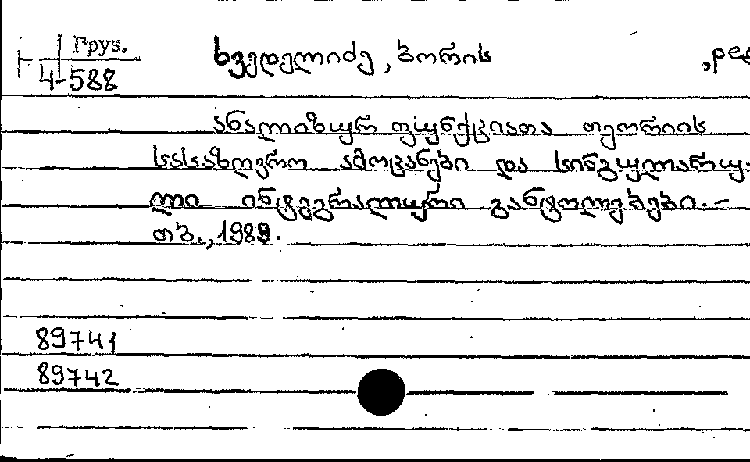 Груз.
4-588
ხვედელიძე, ბორის , рес
ანალიზურ ფუნქციათა თეორიის
სასაზღვრო ამოცანები და სინგულარუ-
ლი ინტეგრალური განტოლებები.–
თბ., 1989.
89741
89742